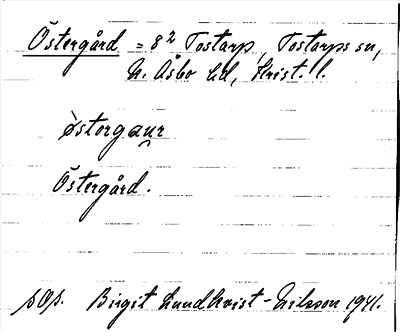 Östergård = 8² Tostarp, Tostarps sn,
N. Åsbo hd, Krist. l.
østorgaur
Östergård.
sOp. Birgit Lundkvist-Nilsson 1941.